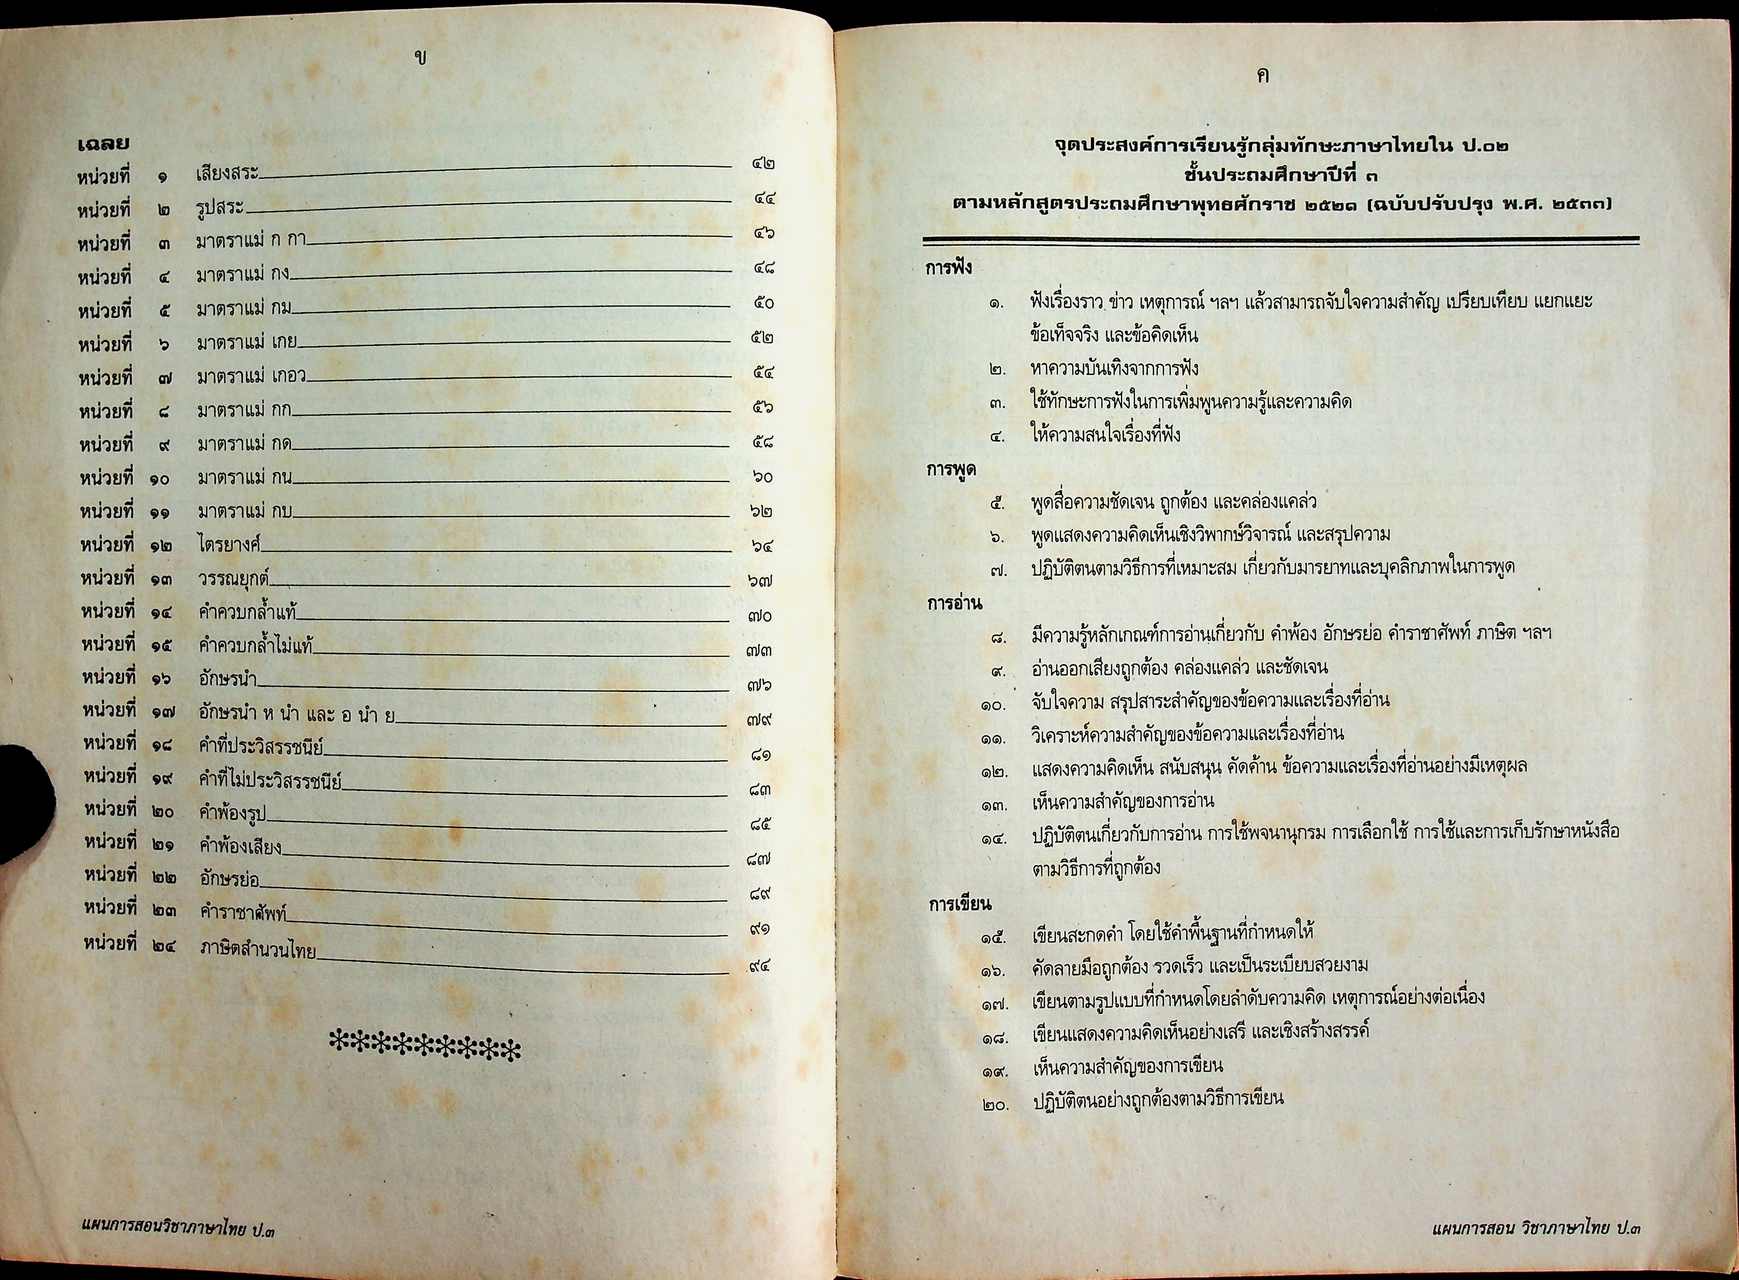 ข
เฉลย
หน่วยที่ ๑ เสียงสระ ๔๒
หน่วยที่ ๒ รูปสระ ๔๔
หน่วยที่ ๓ มาตราแม่ ก กา ๔๖
หน่วยที่ ๔ มาตราแม่ กง ๔๘
หน่วยที่ ๕ มาตราแม่ กม ๕๐
หน่วยที่ ๖ มาตราแม่ เกย ๕๒
หน่วยที่ ๗ มาตราแม่ เกอว ๕๔
หน่วยที่ ๘ มาตราแม่ กก ๕๖
หน่วยที่ ๙ มาตราแม่ กด ๕๘
หน่วยที่ ๑๐ มาตราแม่ กน ๖๐
หน่วยที่ ๑๑ มาตราแม่ กบ ๖๒
หน่วยที่ ๑๒ ไตรยางศ์ ๖๔
หน่วยที่ ๑๓ วรรณยุกต์ ๖๗
หน่วยที่ ๑๔ คำควบกล้ำแท้ ๗๐
หน่วยที่ ๑๕ คำควบกล้ำไม่แท้ ๗๓
หน่วยที่ ๑๖ อักษรนำ ๗๖
หน่วยที่ ๑๗ อักษรนำ ห นำ และ อ นำ ย ๗๙
หน่วยที่ ๑๘ คำที่ประวิสรรชนีย์ ๘๑
หน่วยที่ ๑๙ คำที่ไม่ประวิสรรชนีย์ ๘๓
หน่วยที่ ๒๐ คำพ้องรูป ๘๕
หน่วยที่ ๒๑ คำพ้องเสียง ๘๗
หน่วยที่ ๒๒ อักษรย่อ ๘๙
หน่วยที่ ๒๓ คำราชาศัพท์ ๙๑
หน่วยที่ ๒๔ ภาษิตสำนวนไทย ๙๔
*********
แผนการสอนวิชาภาษาไทย ป.๓
ค
จุดประสงค์การเรียนรู้กลุ่มทักษะภาษาไทยใน ป.๐๒
ชั้นประถมศึกษาปีที่ ๓
ตามหลักสูตรประถมศึกษาพุทธศักราช ๒๕๒๑ (ฉบับปรับปรุง พ.ศ. ๒๕๓๓)
การฟัง
๑. ฟังเรื่องราว ข่าว เหตุการณ์ ฯลฯ แล้วสามารถจับใจความสำคัญ เปรียบเทียบ แยกแยะ
ข้อเท็จจริง และข้อคิดเห็น
๒. หาความบันเทิงจากการฟัง
๓. ใช้ทักษะการฟังในการเพิ่มพูนความรู้และความคิด
๔. ให้ความสนใจเรื่องที่ฟัง
การพูด
๕. พูดสื่อความชัดเจน ถูกต้อง และคล่องแคล่ว
๖. พูดแสดงความคิดเห็นเชิงวิพากษ์วิจารณ์ และสรุปความ
๗. ปฏิบัติตนตามวิธีการที่เหมาะสม เกี่ยวกับมารยาทและบุคลิกภาพในการพูด
การอ่าน
๘. มีความรู้หลักเกณฑ์การอ่านเกี่ยวกับ คำพ้อง อักษรย่อ คำราชาศัพท์ ภาษิต ฯลฯ
๙. อ่านออกเสียงถูกต้อง คล่องแคล่ว และชัดเจน
๑๐. จับใจความ สรุปสาระสำคัญของข้อความและเรื่องที่อ่าน
๑๑. วิเคราะห์ความสำคัญของข้อความและเรื่องที่อ่าน
๑๒. แสดงความคิดเห็น สนับสนุน คัดค้าน ข้อความและเรื่องที่อ่านอย่างมีเหตุผล
๑๓. เห็นความสำคัญของการอ่าน
๑๔. ปฏิบัติตนเกี่ยวกับการอ่าน การใช้พจนานุกรม การเลือกใช้ การใช้และการเก็บรักษาหนังสือ
ตามวิธีการที่ถูกต้อง
การเขียน
๑๕. เขียนสะกดคำ โดยใช้คำพื้นฐานที่กำหนดให้
๑๖. คัดลายมือถูกต้อง รวดเร็ว และเป็นระเบียบสวยงาม
๑๗. เขียนตามรูปแบบที่กำหนดโดยลำดับความคิด เหตุการณ์อย่างต่อเนื่อง
๑๘. เขียนแสดงความคิดเห็นอย่างเสรี และเชิงสร้างสรรค์
๑๙. เห็นความสำคัญของการเขียน
๒๐. ปฏิบัติตนอย่างถูกต้องตามวิธีการเขียน
แผนการสอน วิชาภาษาไทย ป.๓